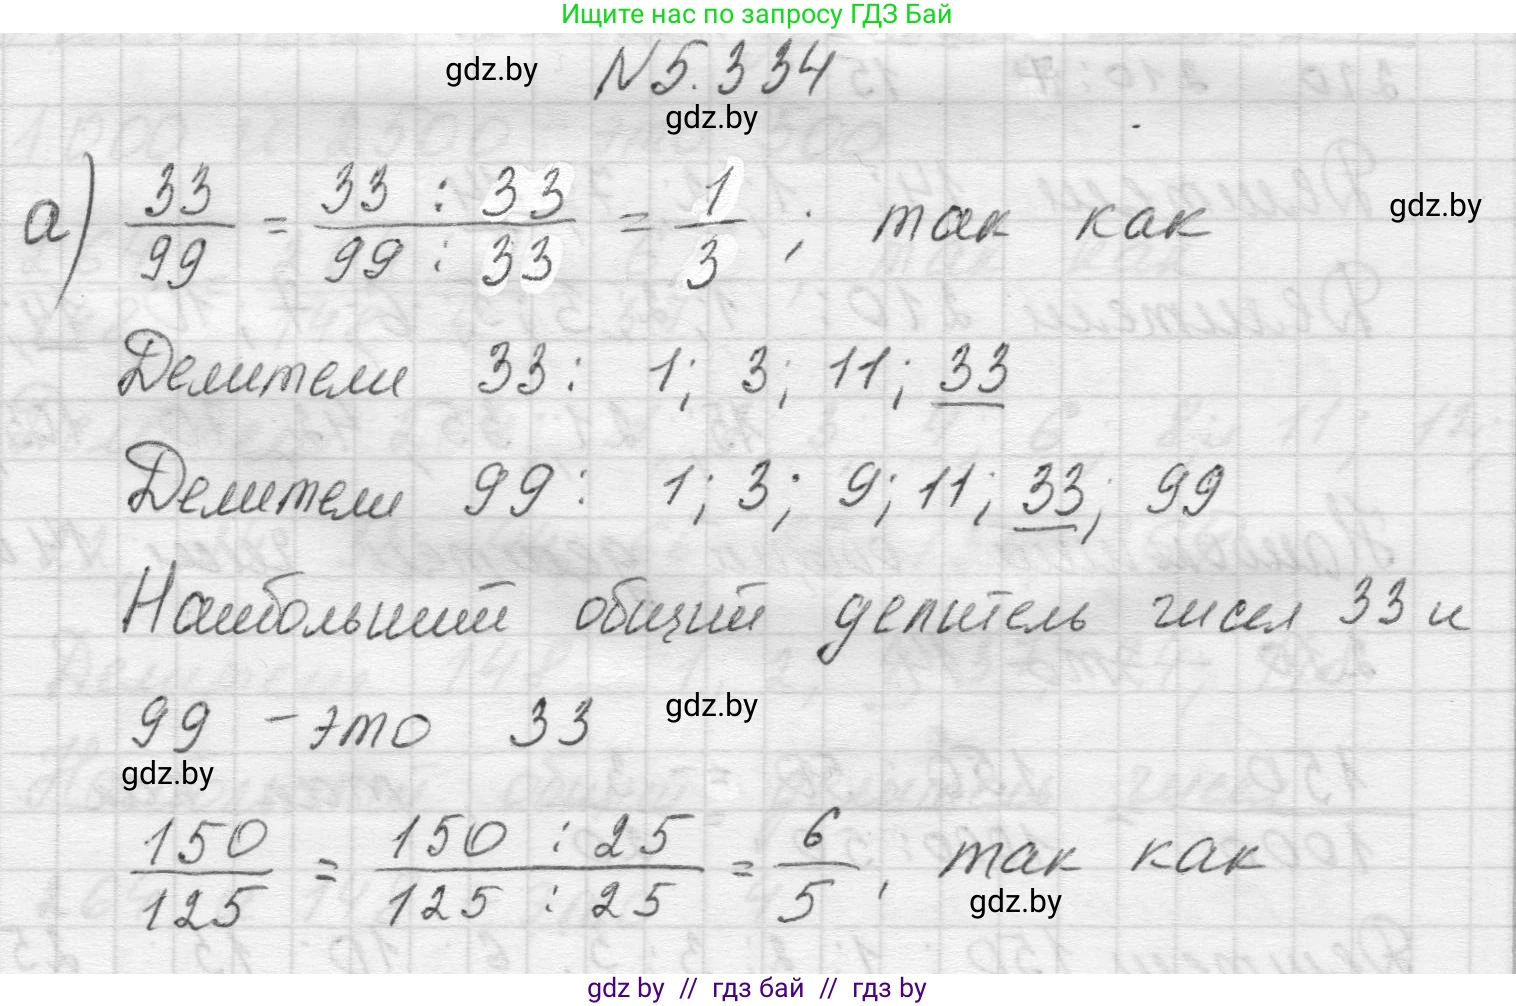 Ищите нас по запросу ГДЗ Бай
gdz.by
N 5.334
gdz.by
а) 33/99 = 33 : 33/99 : 33 = 1/3 ; так как
gdz.by
Делители 33: 1; 3; 11; 33
Делители 99: 1; 3; 9; 11; 33; 99
Наибольший общий делитель чисел 33 и
99 - это 33
gdz.by
gdz.by
150/125 = 150 : 25/125 : 25 = 6/5, так как
gdz.by
gdz by // гдз бай // гдз by